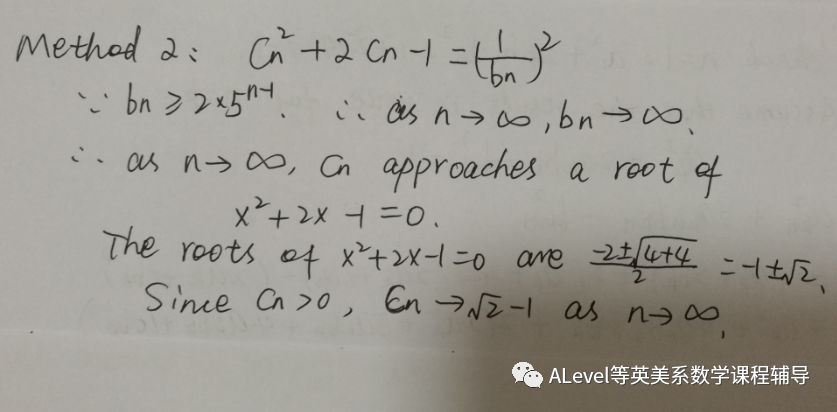 Method 2: Cn²+2Cn-1=(1/bn)²
∵ bn≥2×5ⁿ⁻¹. ∴ as n→∞, bn→∞.
∴ as n→∞, Cn approaches a root of
x²+2x-1=0.
The roots of x²+2x-1=0 are (-2±√(4+4))/2 = -1±√2.
Since Cn>0, Cn→√2-1 as n→∞.
ALevel等英美系数学课程辅导